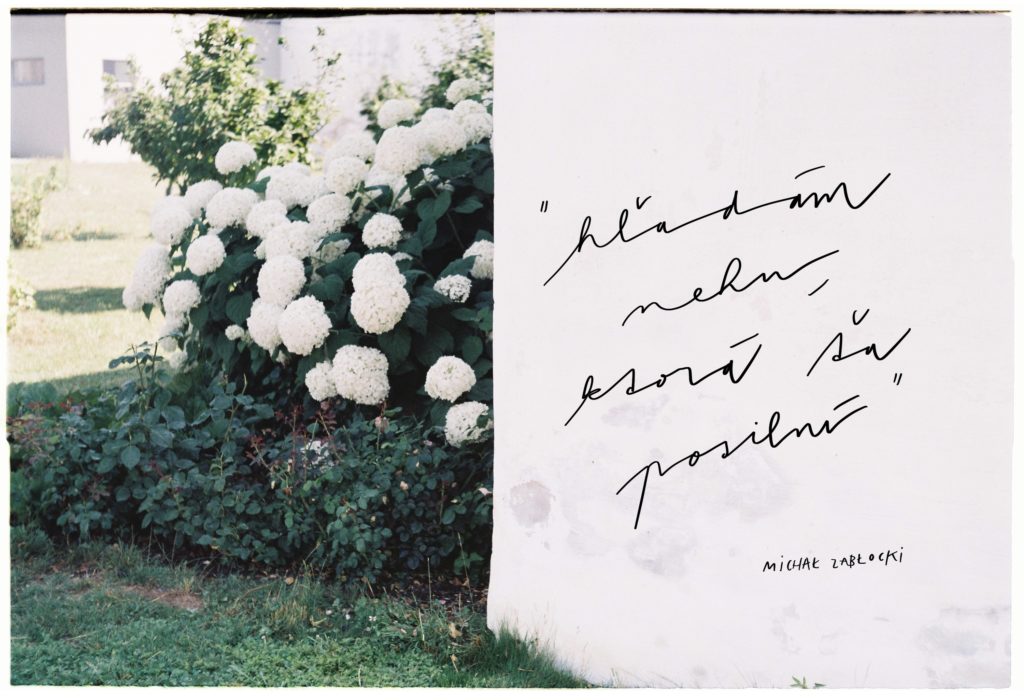 "hľadám
nehu,
ktorá ťa
posilní"
MICHAŁ ZABŁOCKI